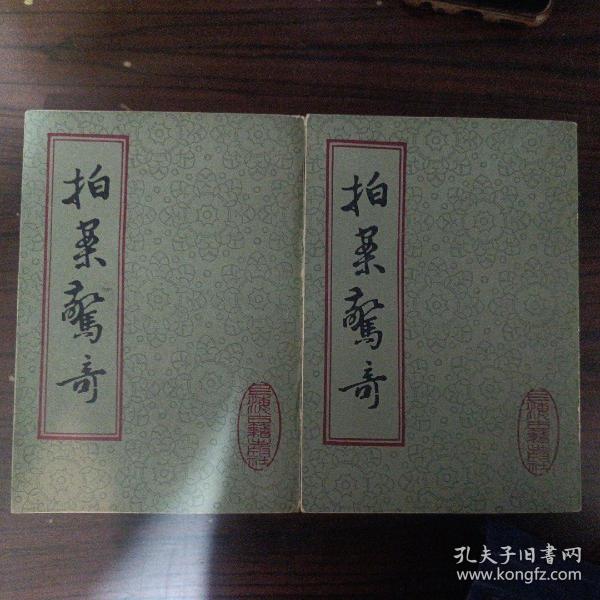 拍案驚奇
上海古籍出版社
拍案驚奇
上海古籍出版社
孔夫子旧書网
www.kongfz.com